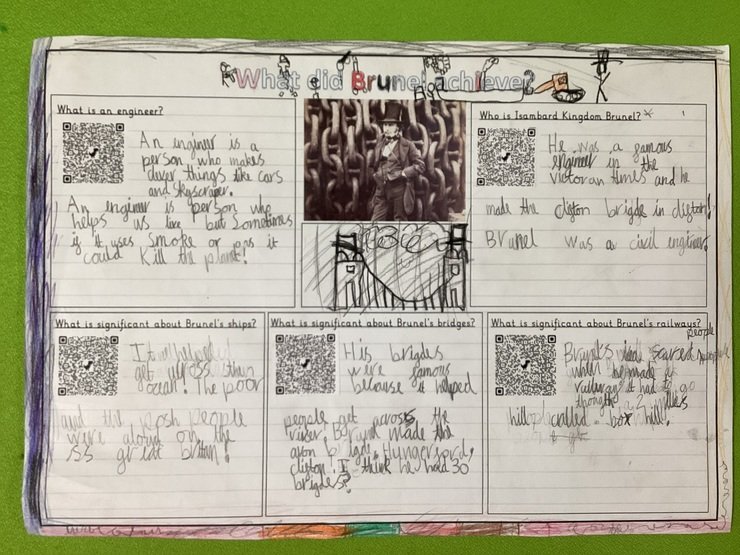 What did Brunel achieve?
What is an engineer?
An enginer is a
person who makes
clever things like cars
and skyscraper.
An enginer is person who
helps us live but Sometimes
if it uses Smoke or it
could Kill the planet!
Who is Isambard Kingdom Brunel?
He was a famous
engineer in the
victorian times and he
made the brigde in
Brunel was a civil enginer.
What is significant about Brunel's ships?
It
get across
ocean! The poor
and the posh people
were aloud on the
SS great britan!
What is significant about Brunel's bridges?
His brigdes
were famous
because it helped
people get across the
river Brunel made the
clifton! I think he 30
brigdes?
What is significant about Brunel's railways?
people
Brunel's scared
when he made
it had to go
2 miles
hill called box hill!